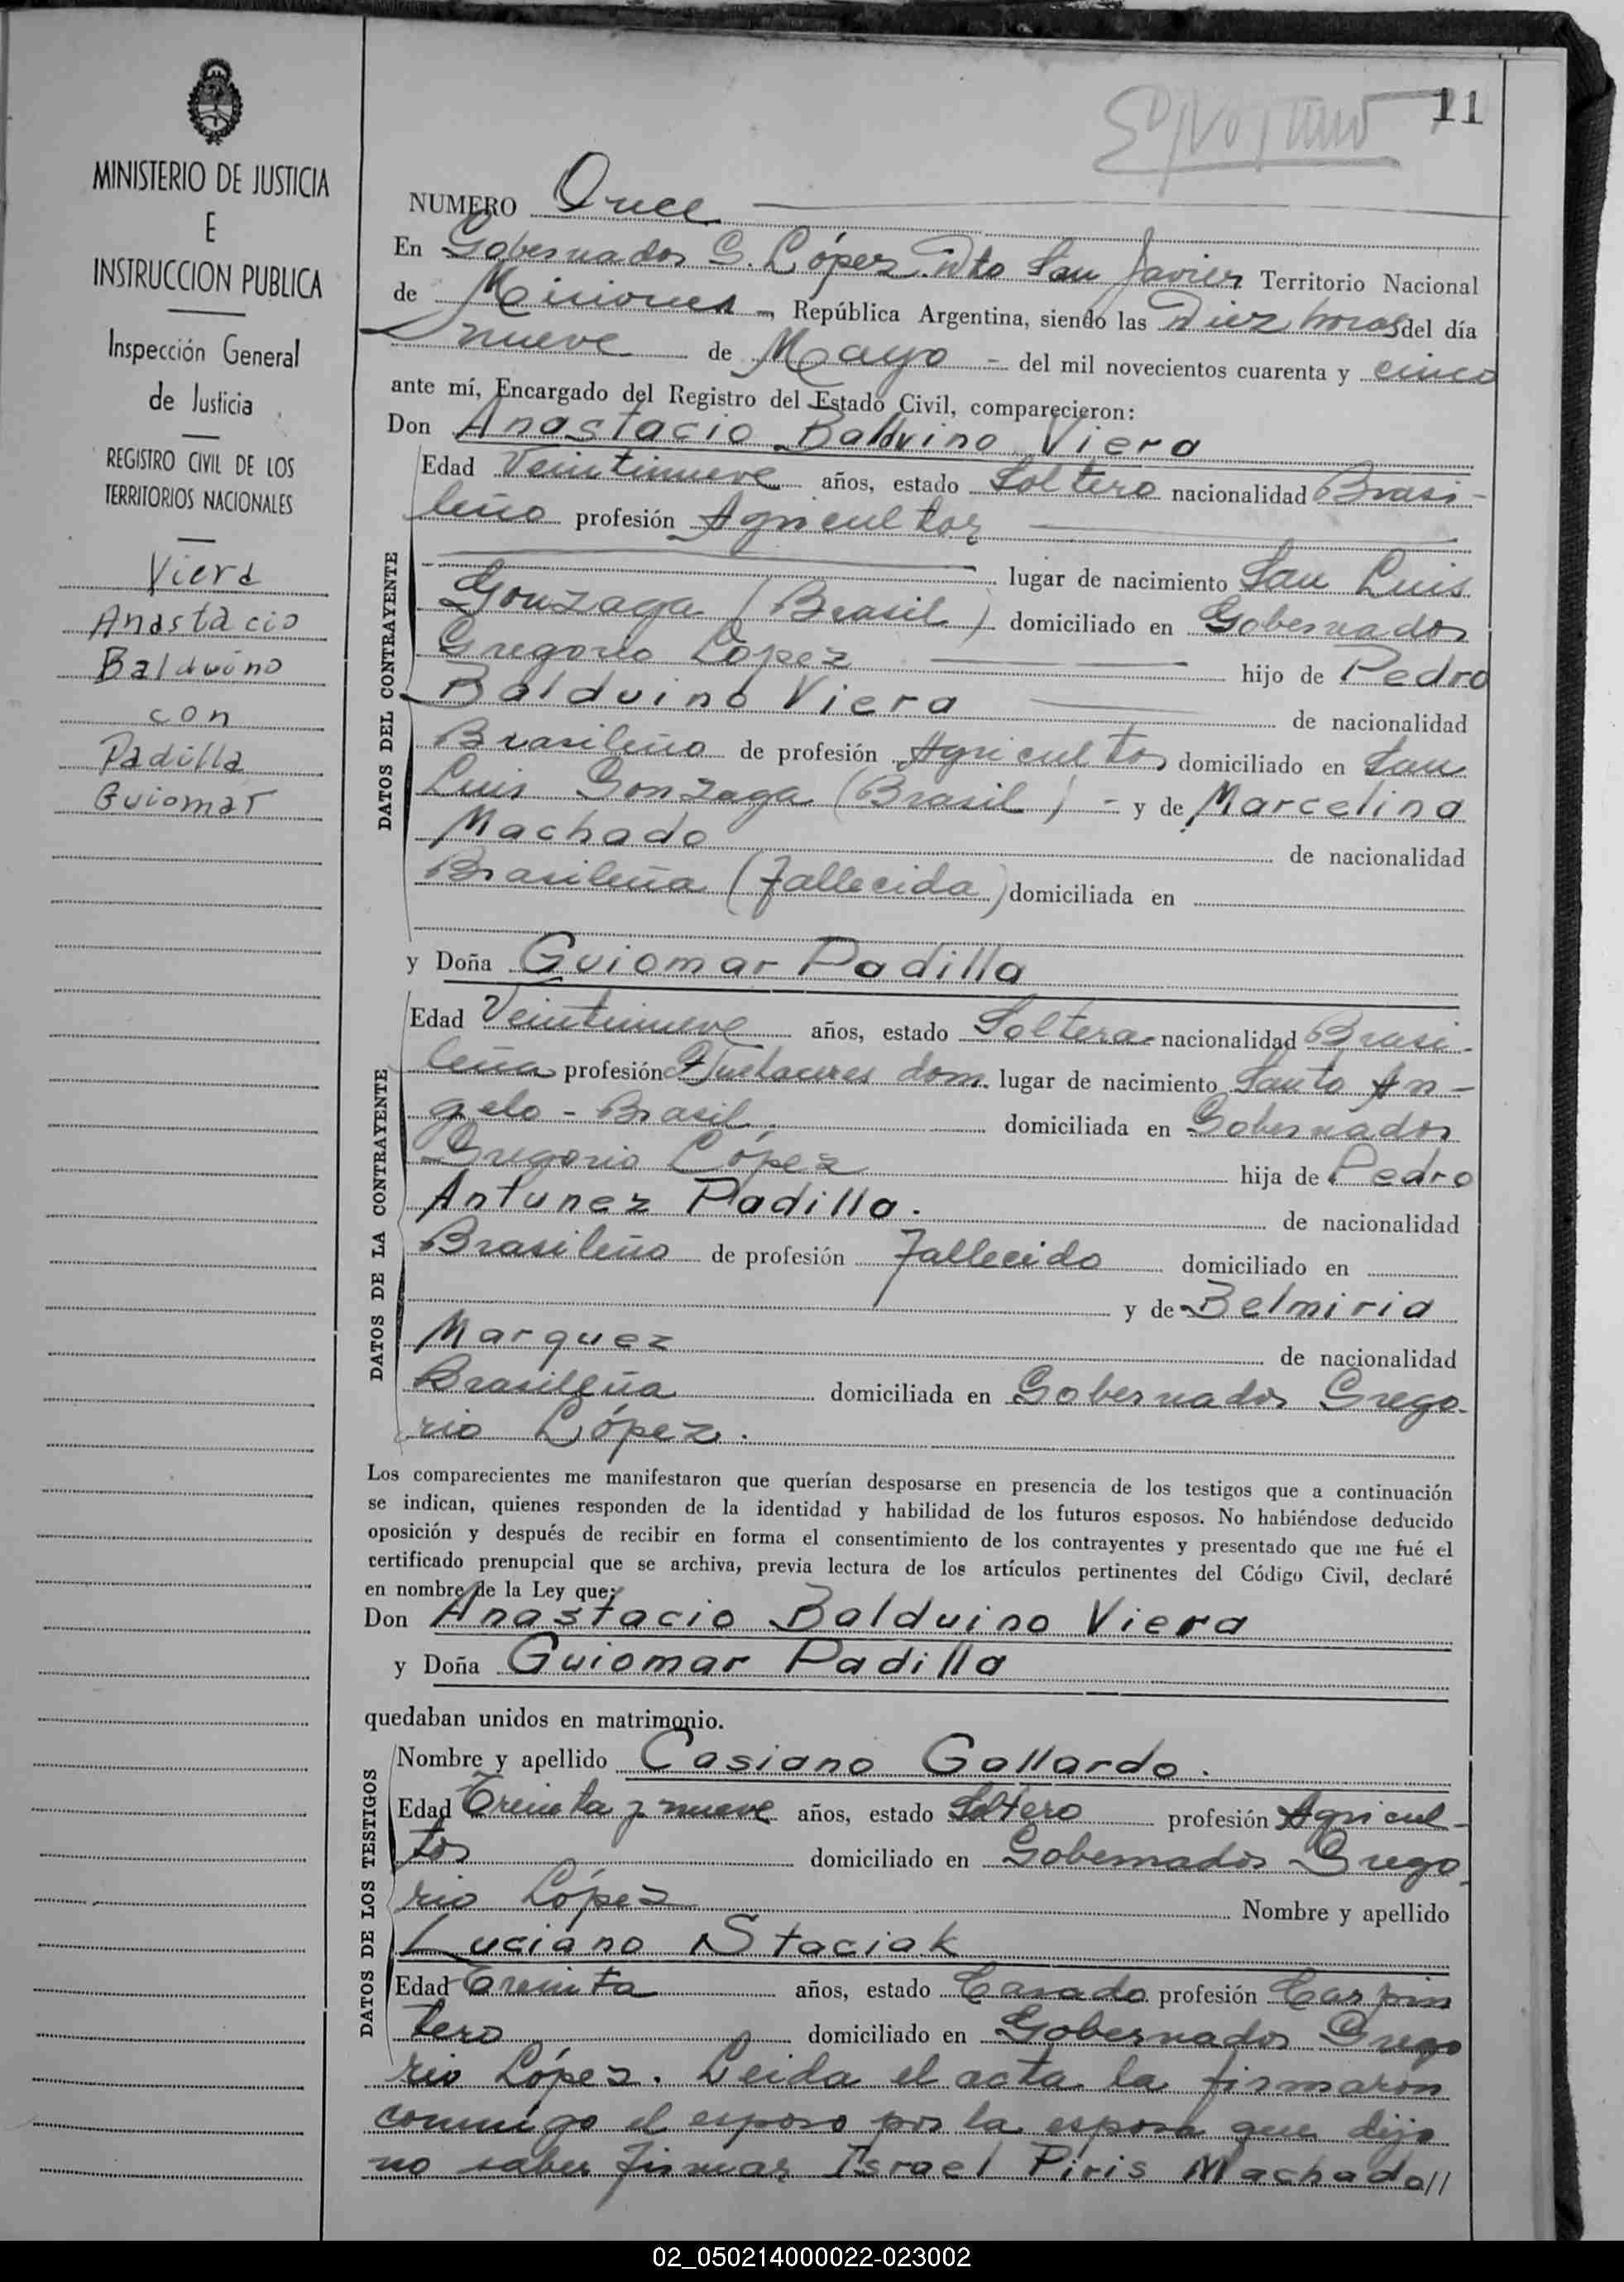 11
MINISTERIO DE JUSTICIA
E
INSTRUCCION PUBLICA
Inspección General
de Justicia
REGISTRO CIVIL DE LOS
TERRITORIOS NACIONALES
Viera
Anastacio
Balduino
con
Padilla
Guiomar
NUMERO Once
En Gobernador G. López Dto San Javier Territorio Nacional
de Misiones -, República Argentina, siendo las Diez horas del día
nueve de Mayo - del mil novecientos cuarenta y cinco
ante mí, Encargado del Registro del Estado Civil, comparecieron:
Don Anastacio Balduino Viera
DATOS DEL CONTRAYENTE
Edad Veintinueve años, estado Soltero nacionalidad Brasi-
leño profesión Agricultor
lugar de nacimiento San Luis
Gonzaga (Brasil) domiciliado en Gobernador
Gregorio López hijo de Pedro
Balduino Viera de nacionalidad
Brasileño de profesión Agricultor domiciliado en San
Luis Gonzaga (Brasil) - y de Marcelina
Machado de nacionalidad
Brasileña (fallecida) domiciliada en
y Doña Guiomar Padilla
DATOS DE LA CONTRAYENTE
Edad Veintinueve años, estado Soltera nacionalidad Brasi-
leña profesión Quehaceres dom. lugar de nacimiento Santo An-
gelo - Brasil. domiciliada en Gobernador
Gregorio López hija de Pedro
Antunez Padilla. de nacionalidad
Brasileño de profesión fallecido domiciliado en
y de Belmiria
Marquez de nacionalidad
Brasileña domiciliada en Gobernador Grego-
rio López.
Los comparecientes me manifestaron que querían desposarse en presencia de los testigos que a continuación
se indican, quienes responden de la identidad y habilidad de los futuros esposos. No habiéndose deducido
oposición y después de recibir en forma el consentimiento de los contrayentes y presentado que me fué el
certificado prenupcial que se archiva, previa lectura de los artículos pertinentes del Código Civil, declaré
en nombre de la Ley que:
Don Anastacio Balduino Viera
y Doña Guiomar Padilla
quedaban unidos en matrimonio.
DATOS DE LOS TESTIGOS
Nombre y apellido Casiano Gallardo.
Edad Treinta y nueve años, estado Soltero profesión Agricul-
tor domiciliado en Gobernador Grego
rio López Nombre y apellido
Luciano Staciak
Edad Treinta años, estado Casado profesión Carpin
tero domiciliado en Gobernador Grego
rio López. Leida el acta la firmaron
conmigo el esposo por la esposa que dijo
no saber firmar Israel Piris Machado//
02_050214000022-023002